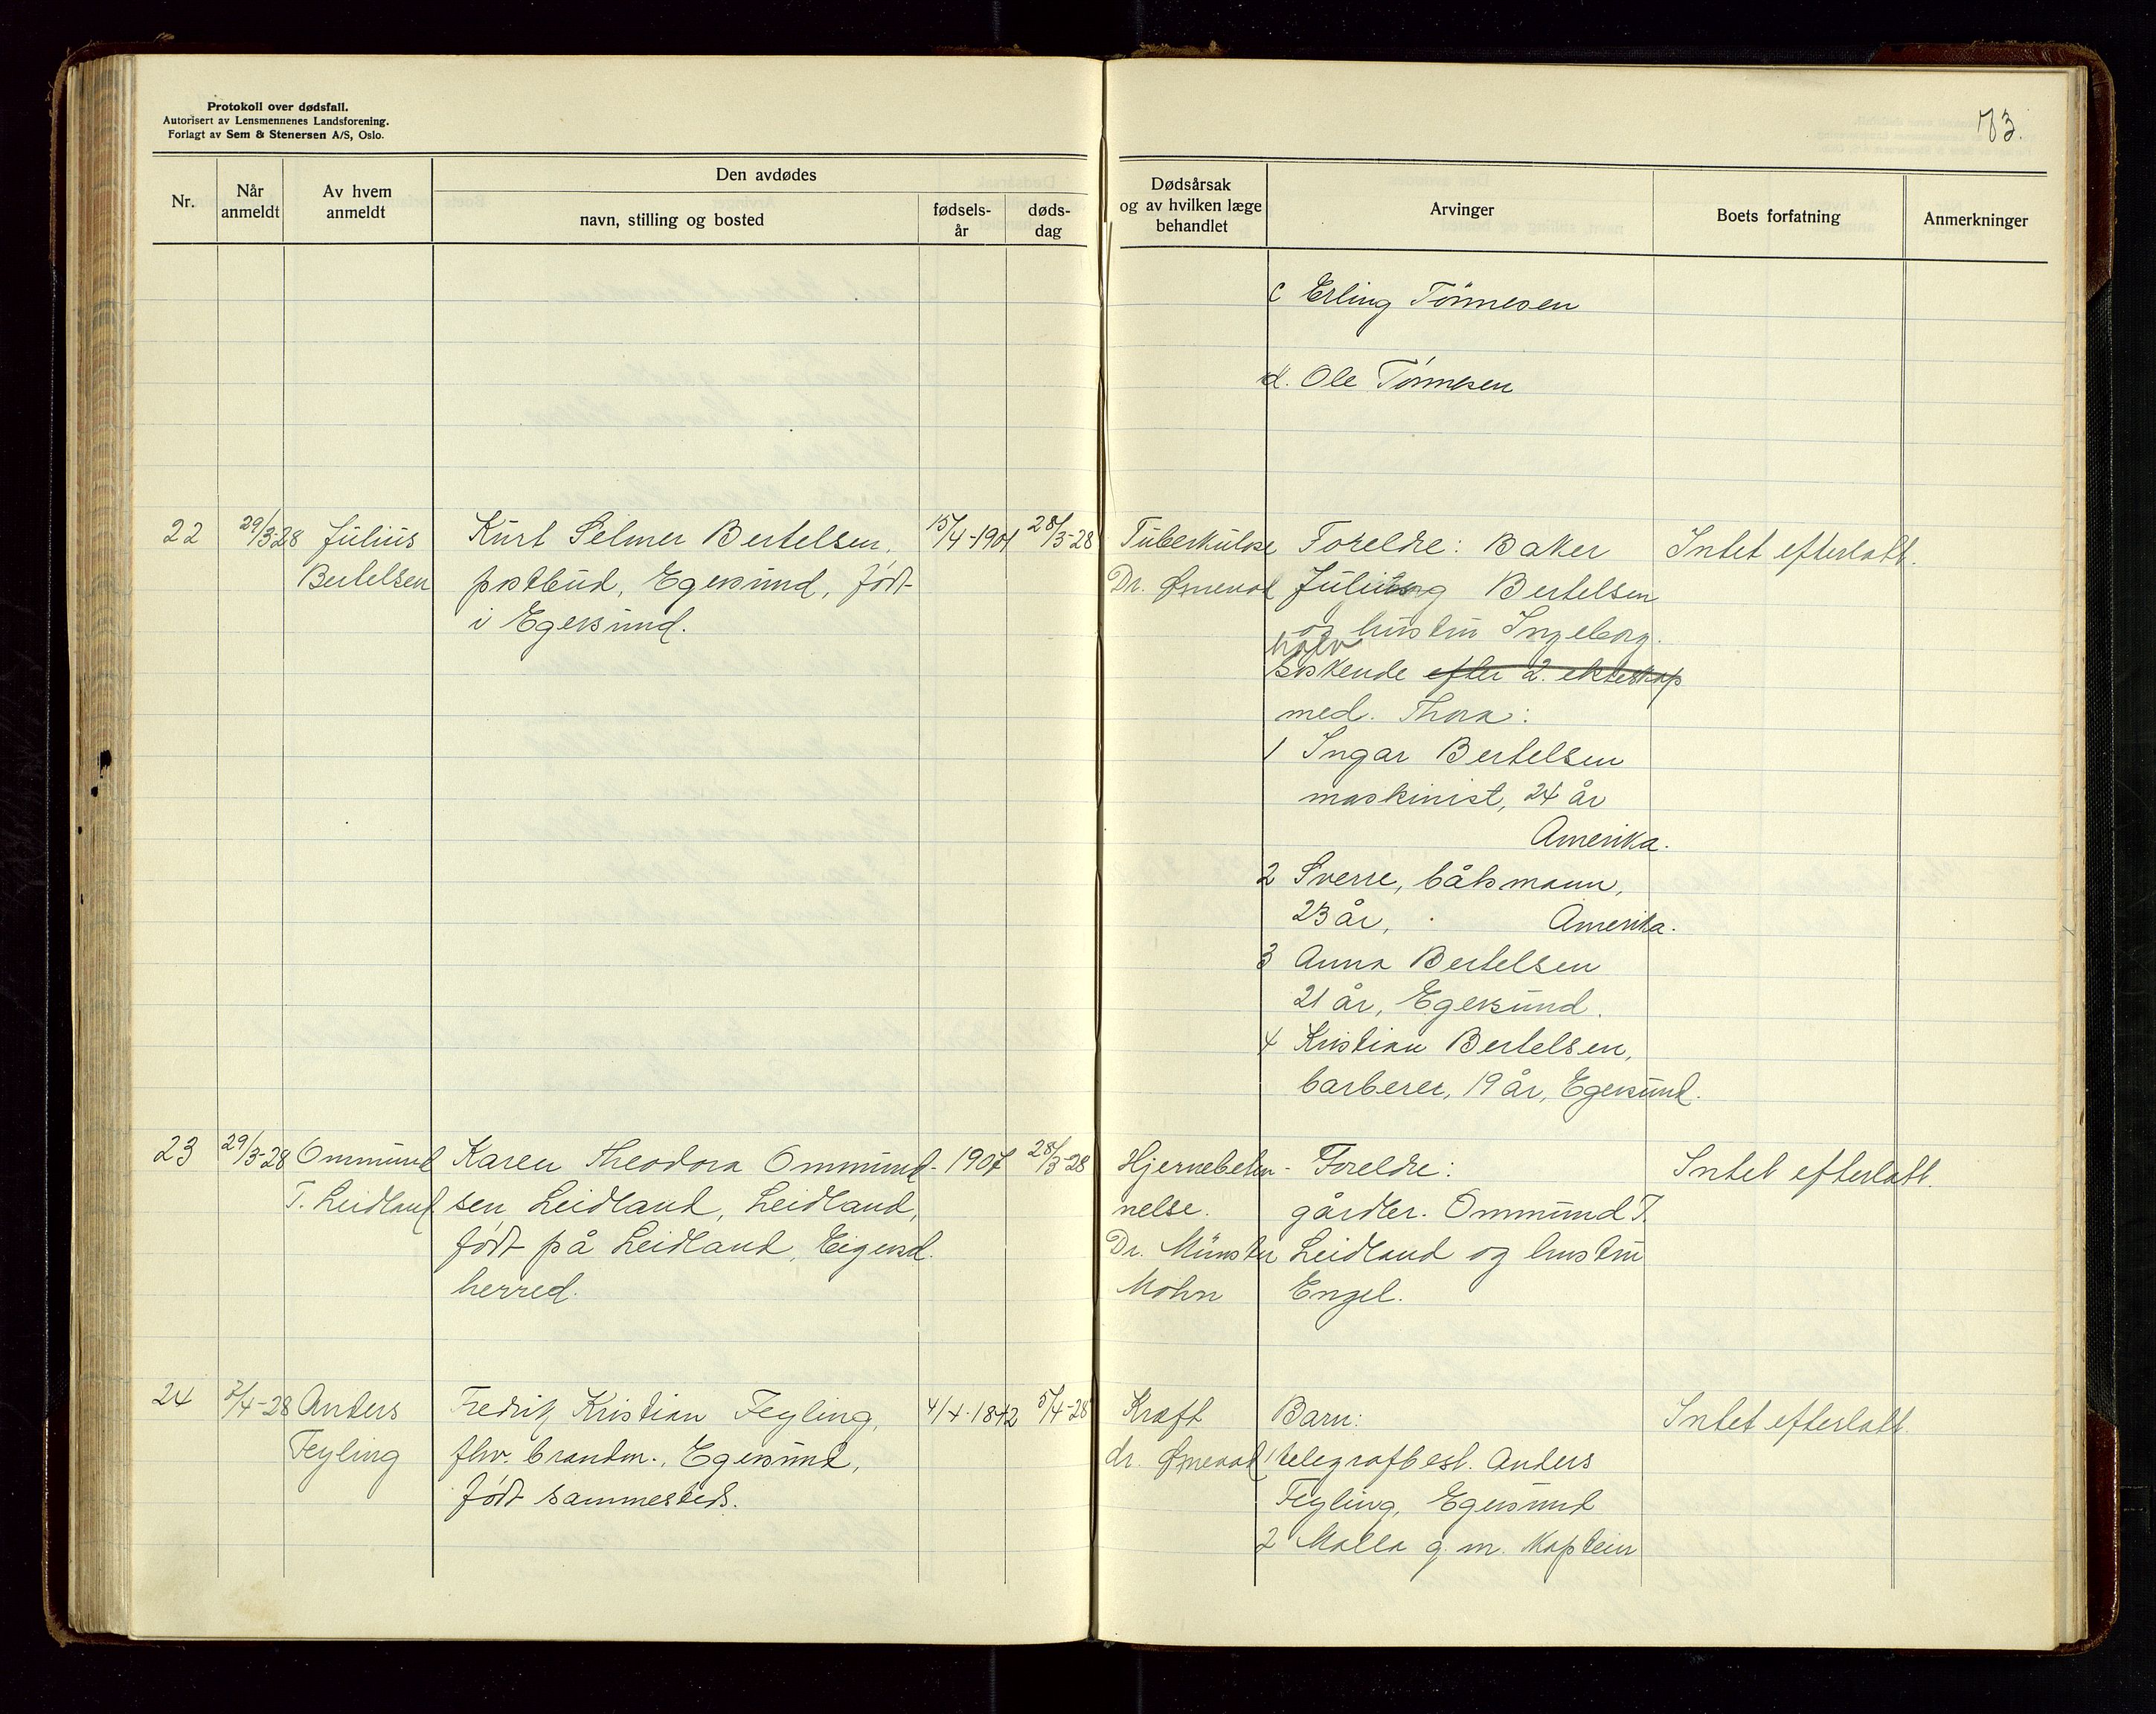 Protokoll over dødsfall.
Autorisert av Lensmennenes Landsforening.
Forlagt av Sem & Stenersen A/S, Oslo.
73.
Nr.
Når anmeldt
Av hvem anmeldt
Den avdødes
navn, stilling og bosted
fødsels-år
døds-dag
Dødsårsak og av hvilken læge behandlet
Arvinger
Boets forfatning
Anmerkninger
c Erling Tönnesen
d. Ole Tönnesen
22 29/3-28 Julius Kurt Selmer Bertelsen, 15/4-1901 28/3-28 Tuberkulose Foreldre: Baker Intet efterlatt.
Bertelsen postbud, Egersund, født Dr. Ørnevold Bertelsen
i Egersund. og hustru Ingeborg.
halv
Søskende efter 2. ekteskap
med. Thora:
1 Ingar Bertelsen
maskinist, 24 år
Amerika.
2 Sverre, båtsmann,
23 år, Amerika.
3 Anna Bertelsen
21 år, Egersund.
4 Kristian Bertelsen,
barberer, 19 år, Egersund.
23 29/3-28 Ommund Karen Theodora Ommund- 1907 28/3-28 Hjernebeten- Foreldre: Intet efterlatt.
T. Leidland sen Leidland, Leidland, nelse. gårdbr. Ommund T.
født på Leidland, Eigersd. Dr. Münster Leidland og hustru
herred. Mohn Engel.
24 7/4-28 Anders Fredrik Kristian Feyling, 4/4-1842 5/4-28 Kræft Barn: Intet efterlatt.
Feyling fhv. brandm., Egersund, dr. Ørnevold 1 telegrafbest. Anders
født sammesteds. Feyling, Egersund
2 Malla g. m. Kaptein